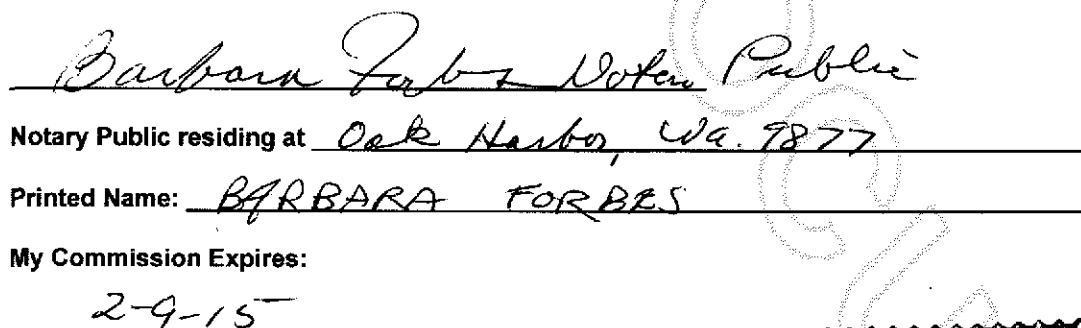 Barbara Forbes Notary Public
Notary Public residing at Oak Harbor, Wa. 9877
Printed Name: BARBARA FORBES
My Commission Expires:
2-9-15